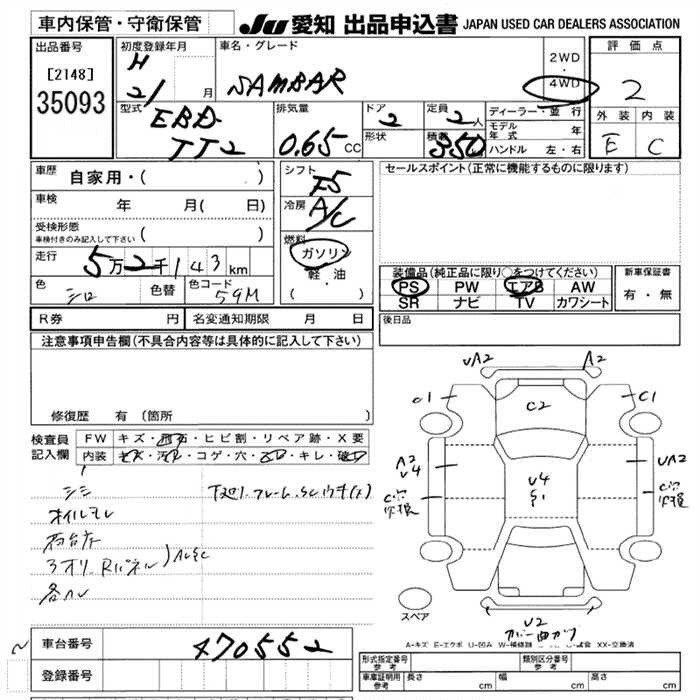 車内保管・守衛保管
JU 愛知 出品申込書 JAPAN USED CAR DEALERS ASSOCIATION
出品番号
[2148]
35093
初度登録年月
H
21/ 月
車名・グレード
SAMBAR
2WD
・
4WD
評価点
2
外装 内装
E C
型式
EBD-
TT2
排気量
0.65 CC
ドア
2
形状
定員
2人
積載
350
ディーラー・並行
モデル年式 年
ハンドル 左・右
車歴
自家用・( )
車検 年 月( 日)
受検形態
車検付きのみ記入して下さい ( )
走行
5万2千143 km
色
シロ
色替
色コード
59M
シフト
F5
冷房
A/C
燃料
ガソリン
軽・油
( ・ )
セールスポイント(正常に機能するものに限ります)
装備品(純正品に限り○をつけてください)
PS PW エアB AW
SR ナビ TV カワシート
新車保証書
有・無
後日品
R券 円
名変通知期限 月 日
注意事項申告欄(不具合内容等は具体的に記入して下さい)
修復歴 有(箇所 )
検査員
記入欄
FW キズ・飛石・ヒビ割・リペア跡・X要
内装 キズ・汚れ・コゲ・穴・ ・キレ・
オイルモレ
各ヘレ
UA2 A2
C1 C1
C2
A2
V4
UA2
V4
S1
スペア
U2
A-キズ E-エクボ U-凹み W-補修跡 XX-交換済
車台番号
470552
登録番号
形式指定番号
参考
類別区分番号
参考
車庫証明用
参考
長さ cm
幅 cm
高さ cm